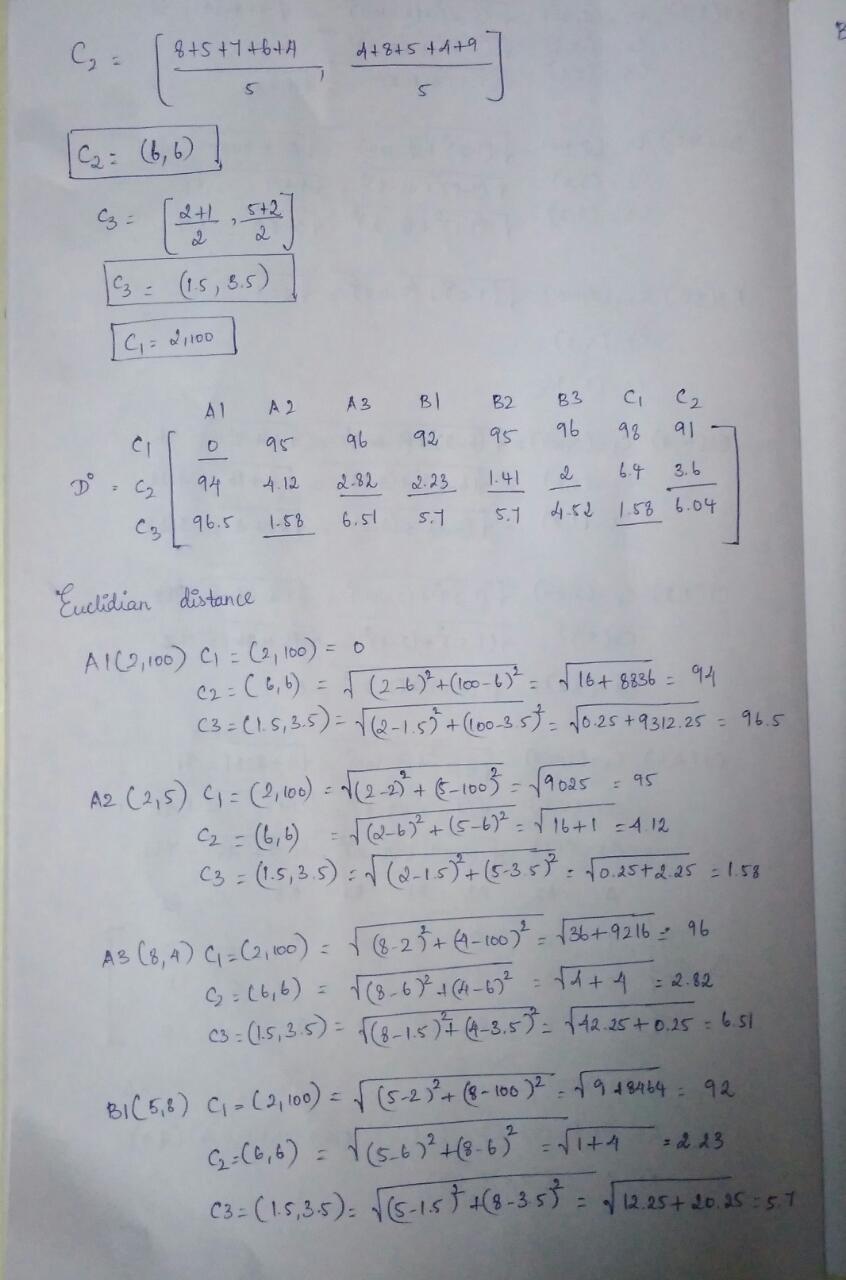 C2 = [ 8+5+7+6+4 / 5 , 4+8+5+4+9 / 5 ]
C2 = (6,6)
C3 = [ 2+1 / 2 , 5+2 / 2 ]
C3 = (1.5, 3.5)
C1 = 2,100
A1 A2 A3 B1 B2 B3 C1 C2
C1 0 95 96 92 95 96 98 91
D⁰ = C2 94 4.12 2.82 2.23 1.41 2 6.4 3.6
C3 96.5 1.58 6.51 5.7 5.7 4.52 1.58 6.04
Euclidian distance
A1(2,100) C1 = (2,100) = 0
C2 = (6,6) = √(2-6)² + (100-6)² = √16 + 8836 = 94
C3 = (1.5,3.5) = √(2-1.5)² + (100-3.5)² = √0.25 + 9312.25 = 96.5
A2 (2,5) C1 = (2,100) = √(2-2)² + (5-100)² = √9025 = 95
C2 = (6,6) = √(2-6)² + (5-6)² = √16+1 = 4.12
C3 = (1.5,3.5) = √(2-1.5)² + (5-3.5)² = √0.25+2.25 = 1.58
A3 (8,4) C1 = (2,100) = √(8-2)² + (4-100)² = √36+9216 = 96
C2 = (6,6) = √(8-6)² + (4-6)² = √4+4 = 2.82
C3 = (1.5,3.5) = √(8-1.5)² + (4-3.5)² = √42.25 + 0.25 = 6.51
B1(5,8) C1 = (2,100) = √(5-2)² + (8-100)² = √9+8464 = 92
C2 = (6,6) = √(5-6)² + (8-6)² = √1+4 = 2.23
C3 = (1.5,3.5) = √(5-1.5)² + (8-3.5)² = √12.25 + 20.25 = 5.7